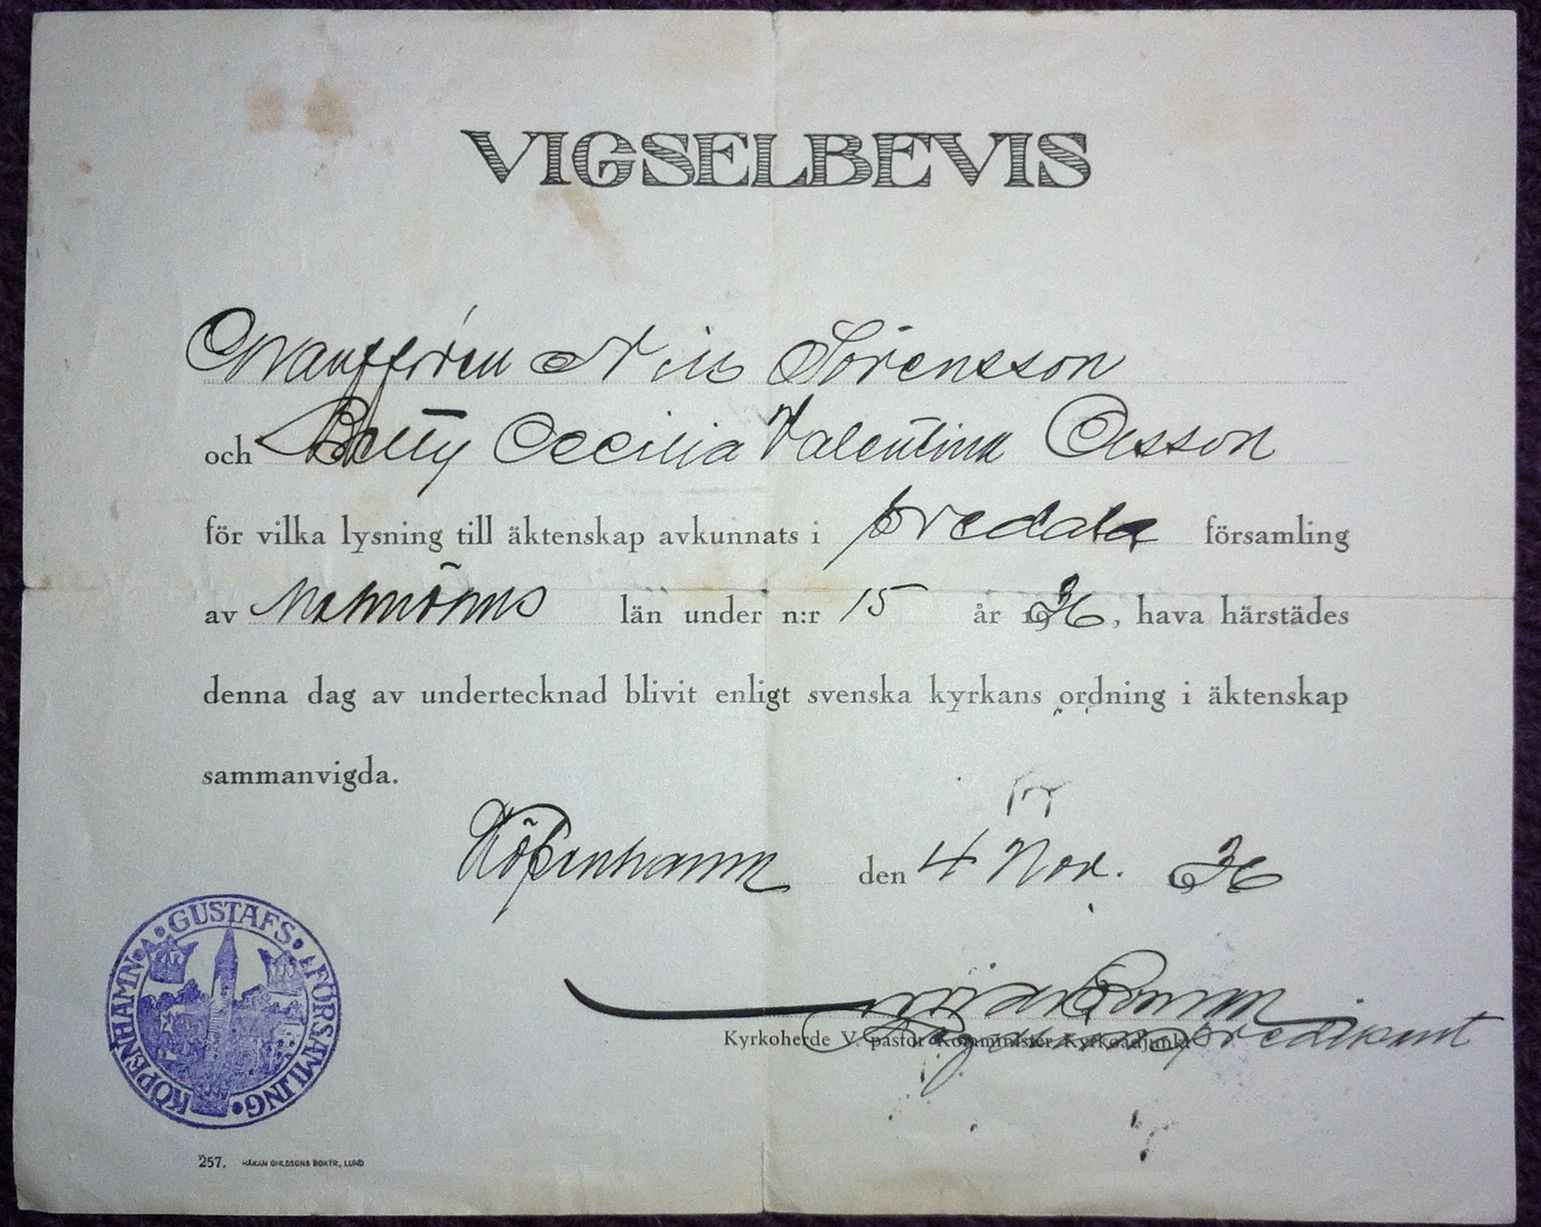 VIGSELBEVIS
Nils Sörensson
och Betty Cecilia Valentina Olsson
för vilka lysning till äktenskap avkunnats i Svedala församling
av Malmöhus län under n:r 15 år 1936, hava härstädes
denna dag av undertecknad blivit enligt svenska kyrkans ordning i äktenskap
sammanvigda.
Köpenhamn den 4 Nov. 36
Kyrkoherde V. pastor Komminister Kyrkoadjunkt predikant
GUSTAFS FÖRSAMLING KÖPENHAMN
257. HÅKAN OHLSSONS BOKTR., LUND